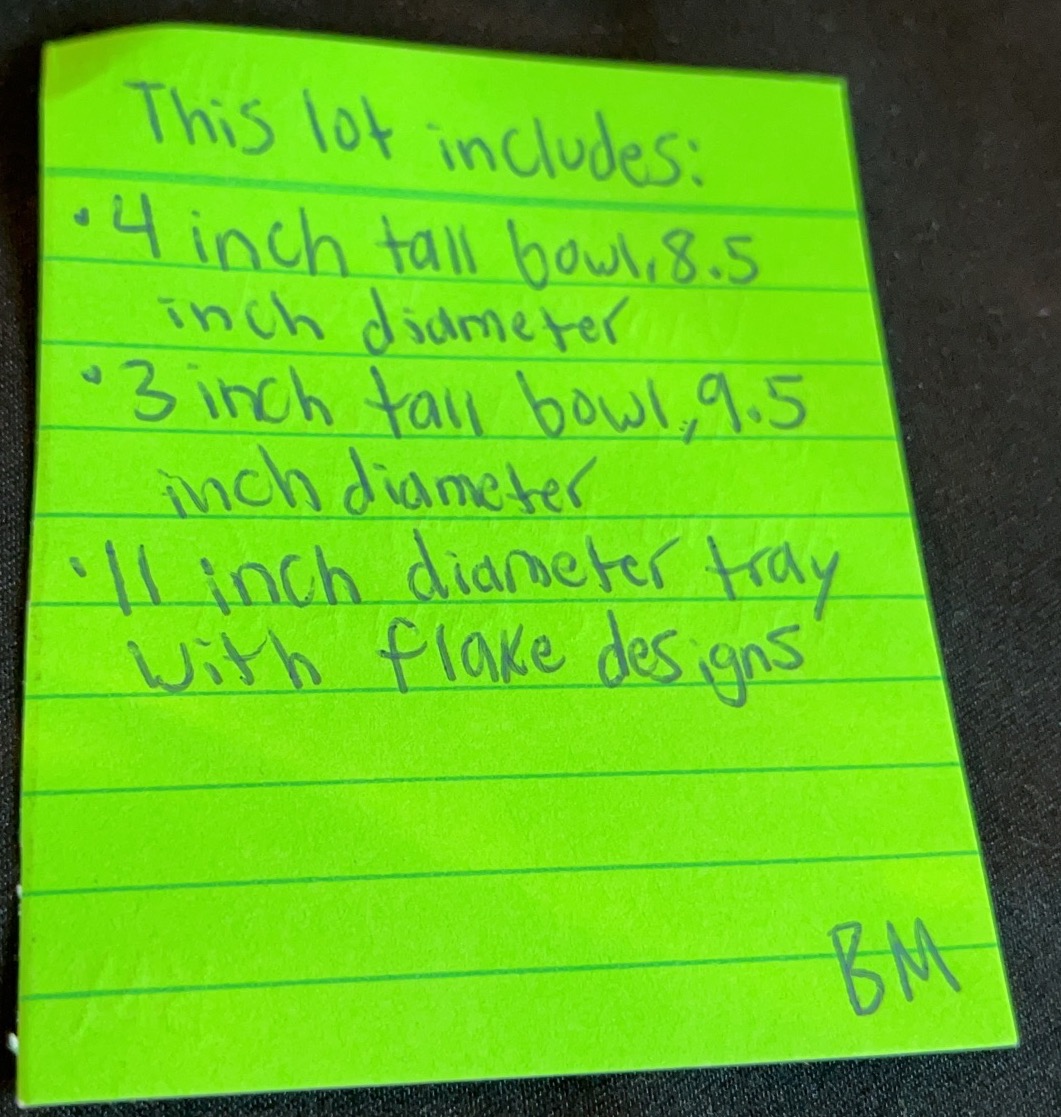 This lot includes:
• 4 inch tall bowl, 8.5
inch diameter
• 3 inch tall bowl, 9.5
inch diameter
• 11 inch diameter tray
with flake designs
BM